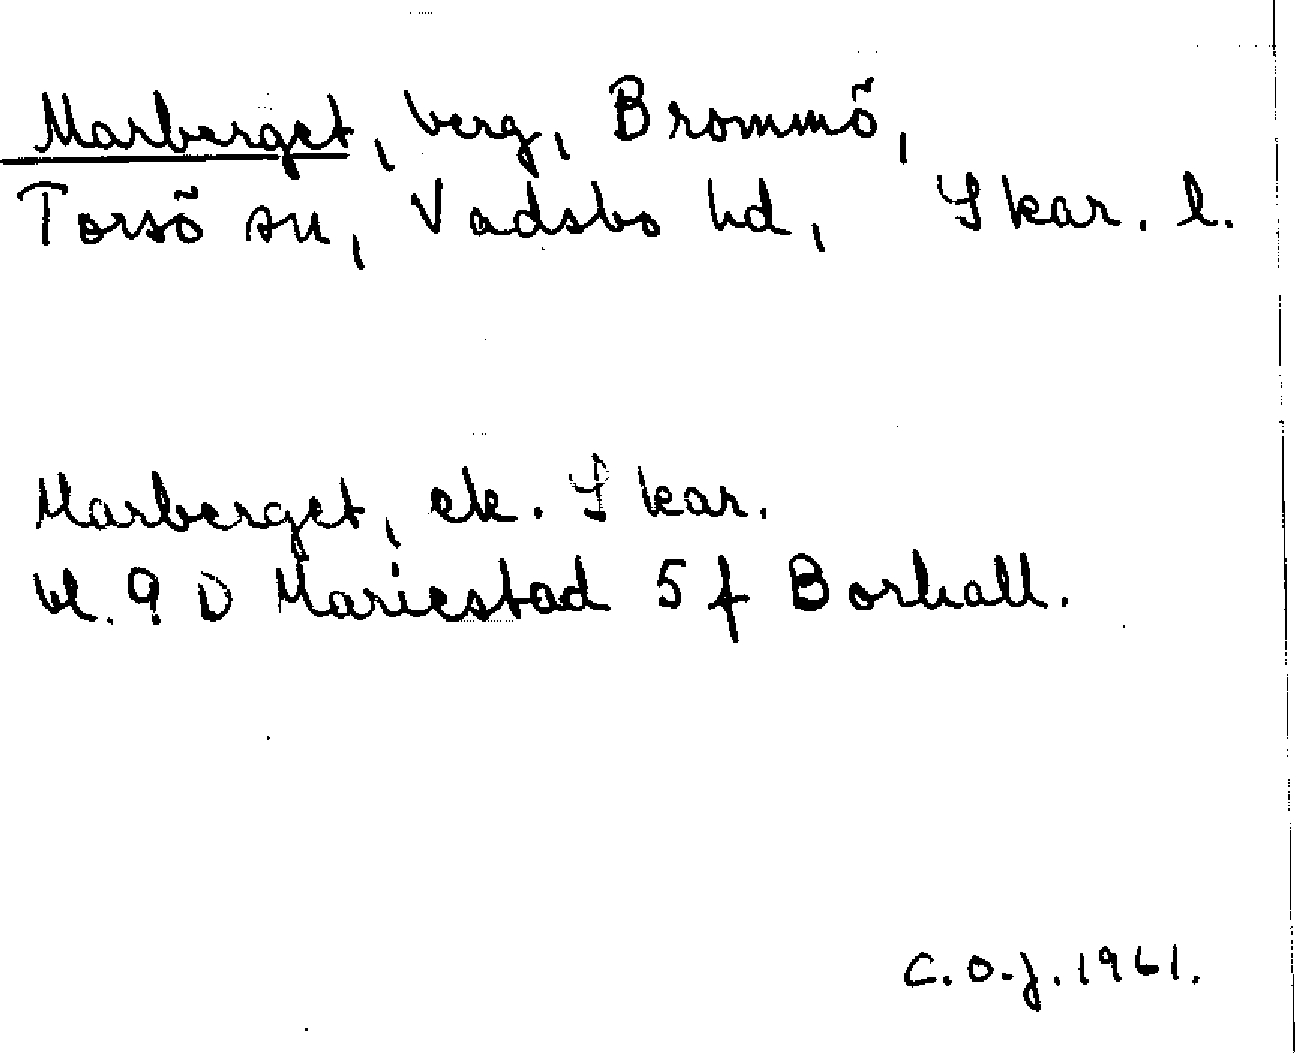 Marberget, berg, Brommö,
Torsö sn, Vadsbo hd, Skar. l.
Marberget, ek. Skar.
bl. 9 D Mariestad 5 f Borhall.
C.O-j. 1961.